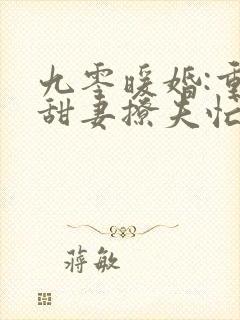 九零暖婚:重
甜妻撩夫忙
蒋敏